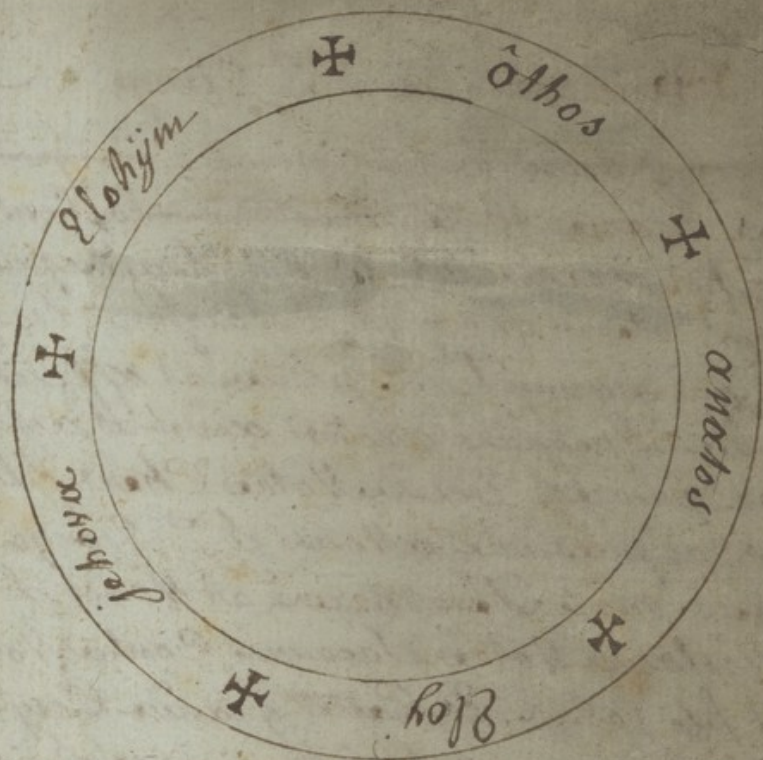 ✠ ôthos ✠ anatos ✠ Eloy ✠ jehova ✠ Elohÿm